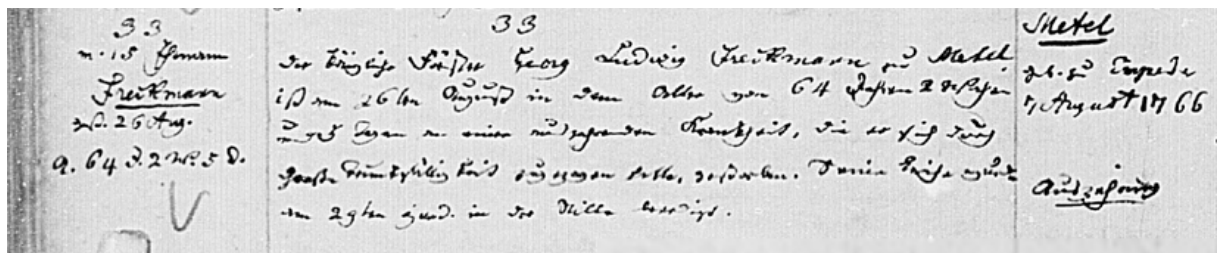 33
m. 15 Ehemann
Freckmann
gest. 26 Aug.
a. 64 J. 2 W. 5 d.
33
Der Königliche Förster Georg Ludwig Freckmann zu Metel
ist am 26ten August in dem Alter von 64 Jahren 2 Wochen
und 5 Tagen an einer auszehrenden Krankheit, die er sich durch
große zugezogen hatte, gestorben. Seine Leiche wurde
am 29ten ejusd. in der Stille beerdigt.
Metel
geb. zu Empede
7, August 1766
Auszehrung